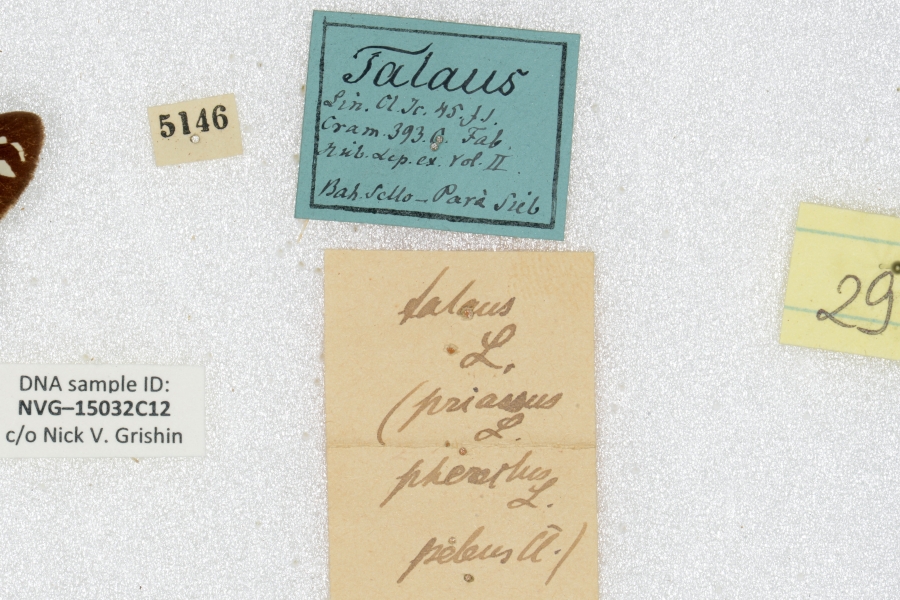 5146
Talaus
Lin. Cl. Ic. 45. f 1.
Cram. 393. Fab.
Hüb. Lep. ex. Vol. II.
Bah. Sello – Parà Sieb
talaus
L.
(priassus
L.
pherethus
L.
peleus Cl.)
29
DNA sample ID:
NVG–15032C12
c/o Nick V. Grishin